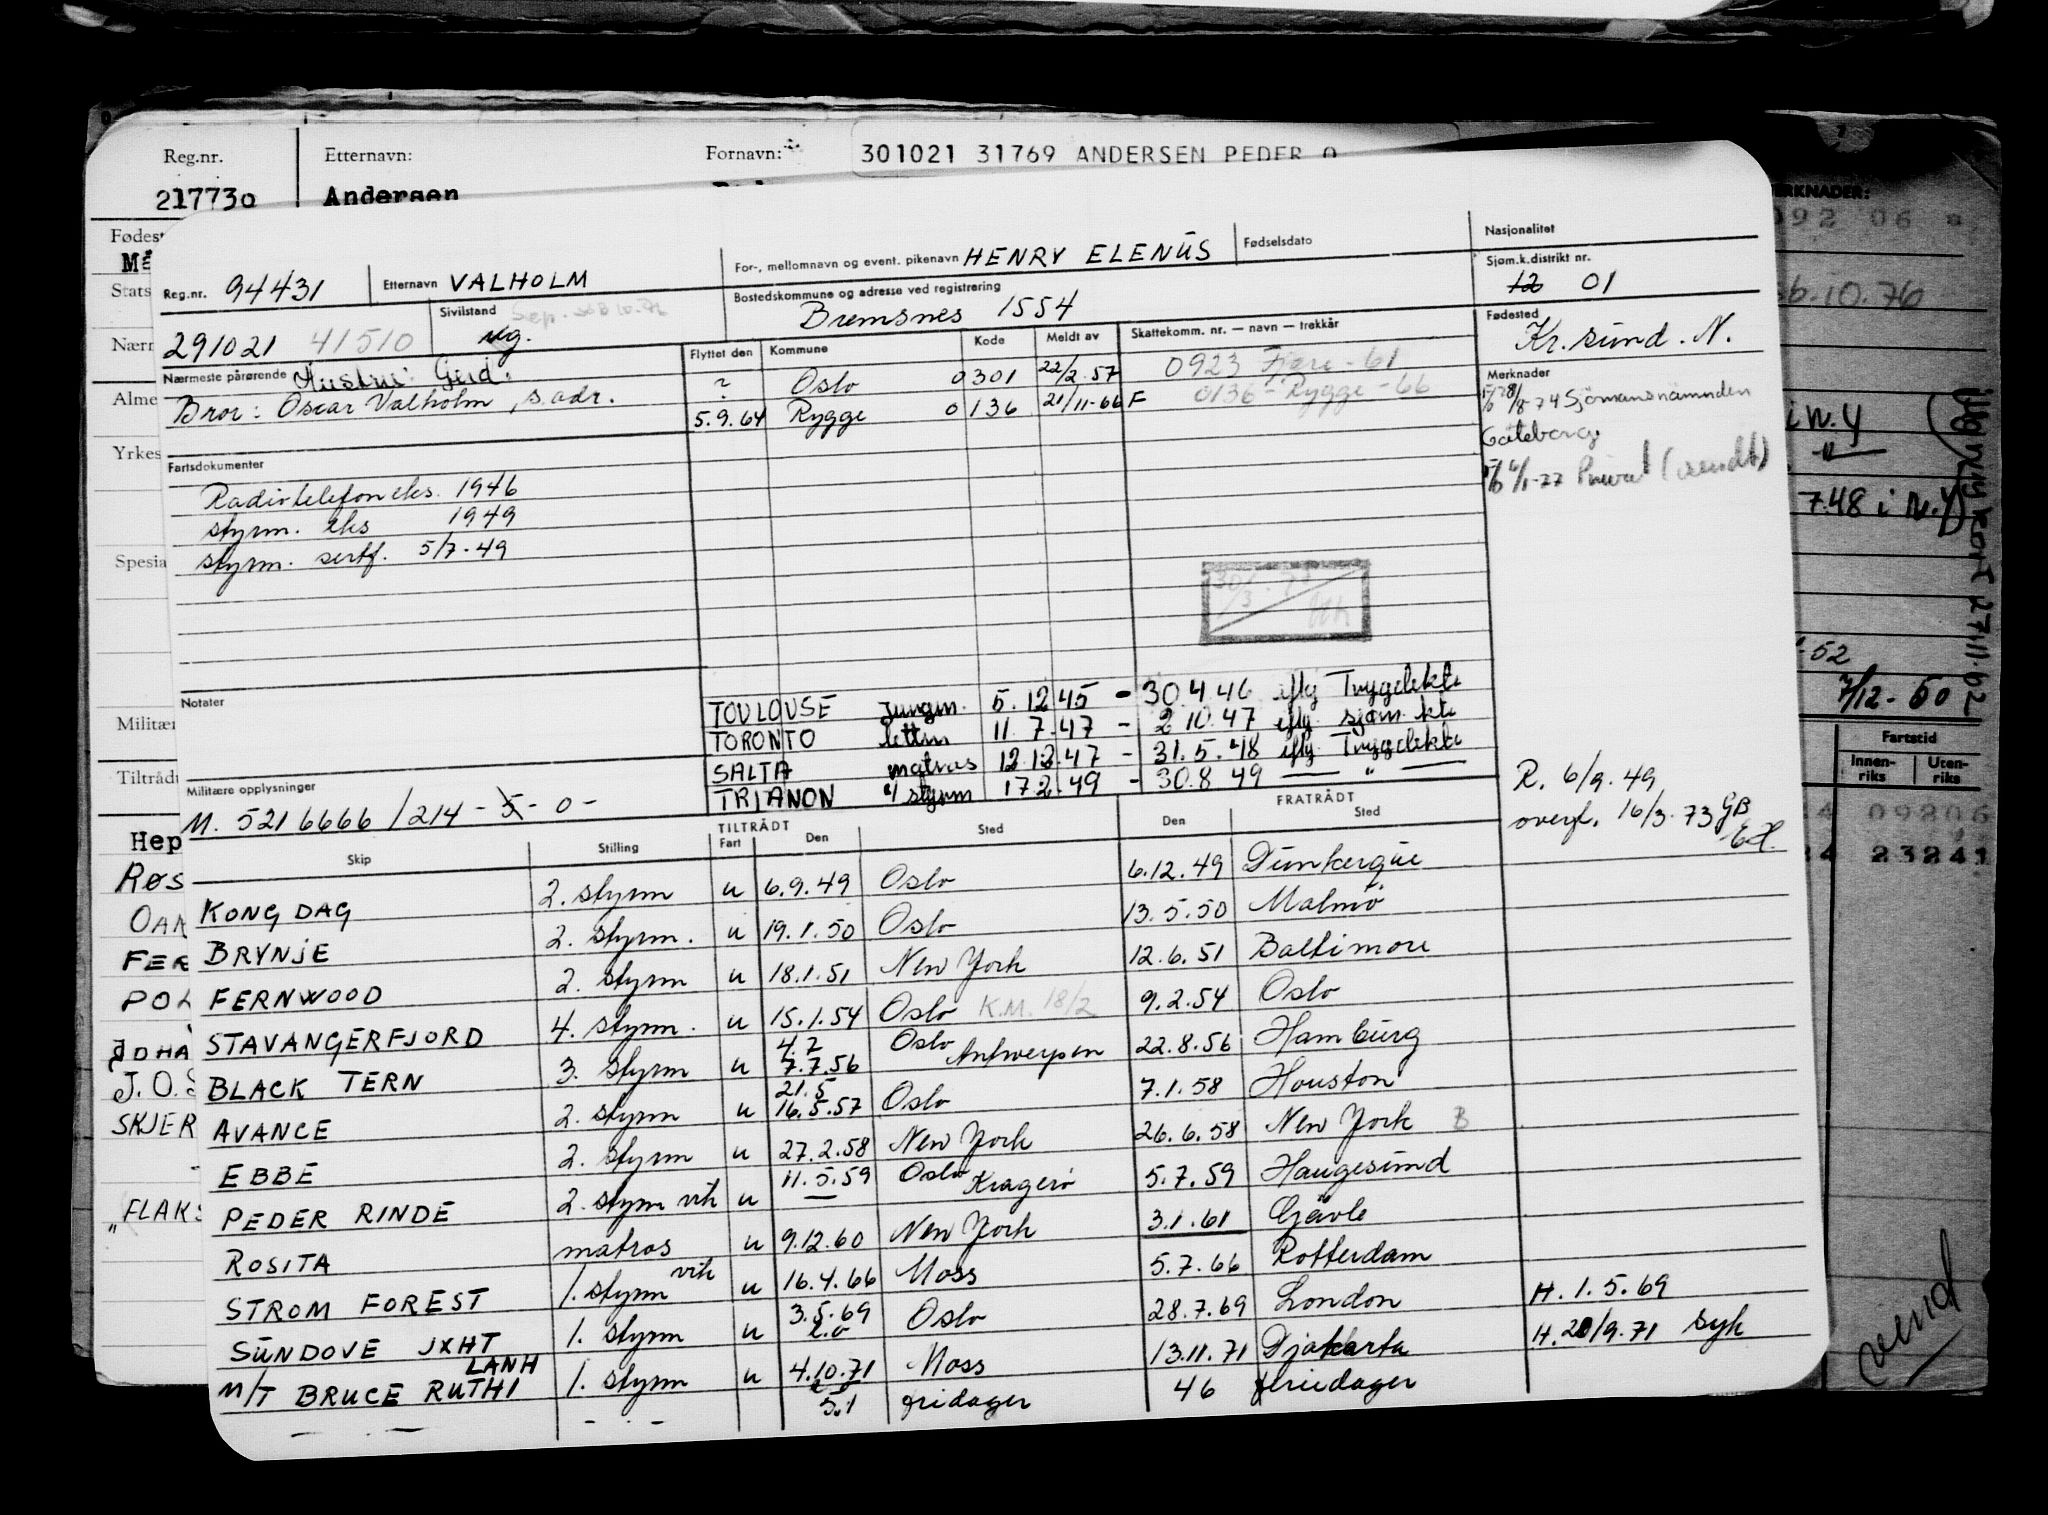 Reg.nr. Etternavn: Fornavn: 301021 31769 ANDERSEN PEDER O
217730 Andersen
Reg.nr. 94431 Etternavn VALHOLM For-, mellomnavn og event. pikenavn HENRY ELENUS Fødselsdato Nasjonalitet
291021 41510 Sivilstand ug. Bostedskommune og adresse ved registrering Bremsnes 1554 Sjøm.k.distrikt nr. 12 01
Nærmeste pårørende Hustru: Gerd. Flyttet den Kommune Kode Meldt av Skattekomm. nr. — navn — trekkår Fødested Kr.sund. N.
Bror: Oscar Valholm, s. adr. ? Oslo 0301 22/2.57 0923 Fjære-61
5.9.64 Rygge 0136 21/11-66 F 0136-Rygge-66
Merknader
8/8-74 Sjömansnämnden
Göteborg
Privat (vendt)
Fartsdokumenter
Radiotelefoneks. 1946
styrm. eks 1949
styrm. sertf. 5/7-49
Notater
TOULOUSE jungm. 5.12.45 - 30.4.46 iflg Trygdekto
TORONTO lettm 11.7.47 - 2.10.47 iflg. sjøm.kto
SALTA matros 12.12.47 - 31.5.48 iflg. Trygdekto
TRIANON styrm 17.2.49 - 30.8.49 — " —
Militære opplysninger
M. 5216666/214-5-0-
R. 6/9.49
overf. 16/3.73 GB
Skip Stilling TILTRÅDT Fart Den Sted FRATRÅDT Den Sted
KONG DAG 2. styrm u 6.9.49 Oslo 6.12.49 Dunkerque
BRYNJE 2. styrm. u 19.1.50 Oslo 13.5.50 Malmø
FERNWOOD 2. styrm u 18.1.51 New York 12.6.51 Baltimore
STAVANGERFJORD 4. styrm. u 15.1.54 Oslo K.M. 18/2 9.2.54 Oslo
BLACK TERN 3. styrm u 4.7 7.7.56 Oslo Antwerpen 22.8.56 Hamburg
AVANCE 2. styrm u 21.5 16.5.57 Oslo 7.1.58 Houston
EBBE 2. styrm u 27.2.58 New York 26.6.58 New York B
PEDER RINDE 2. styrm vik u 11.5.59 — Oslo Kragerø 5.7.59 Haugesund
ROSITA matros u 9.12.60 New York 3.1.61 Gävle
STROM FOREST 1. styrm vik u 16.4.66 Moss 5.7.66 Rotterdam
SUNDOVE JXHT 1. styrm u 3.5.69 Oslo 28.7.69 London H. 1.5.69
M/T BRUCE RUTHI LANH 1. styrm u 4.10.71 Moss 13.11.71 Djakarta H. 20/9.71 syk
— . — - . - 51 fridager 46 feriedager
Fødest
Stats
Nærm
Alme
Yrkes
Spesia
Militær
Tiltrådt
Hep
POL
J.O.S
SKJER
"FLAKS
MERKNADER:
092 06
10.76
i N.Y
7.48 i N.Y
52
7/12-50
Utg nytt kort 27.11.62
Fartstid
Innen-riks Uten-riks
09206
23241
vend